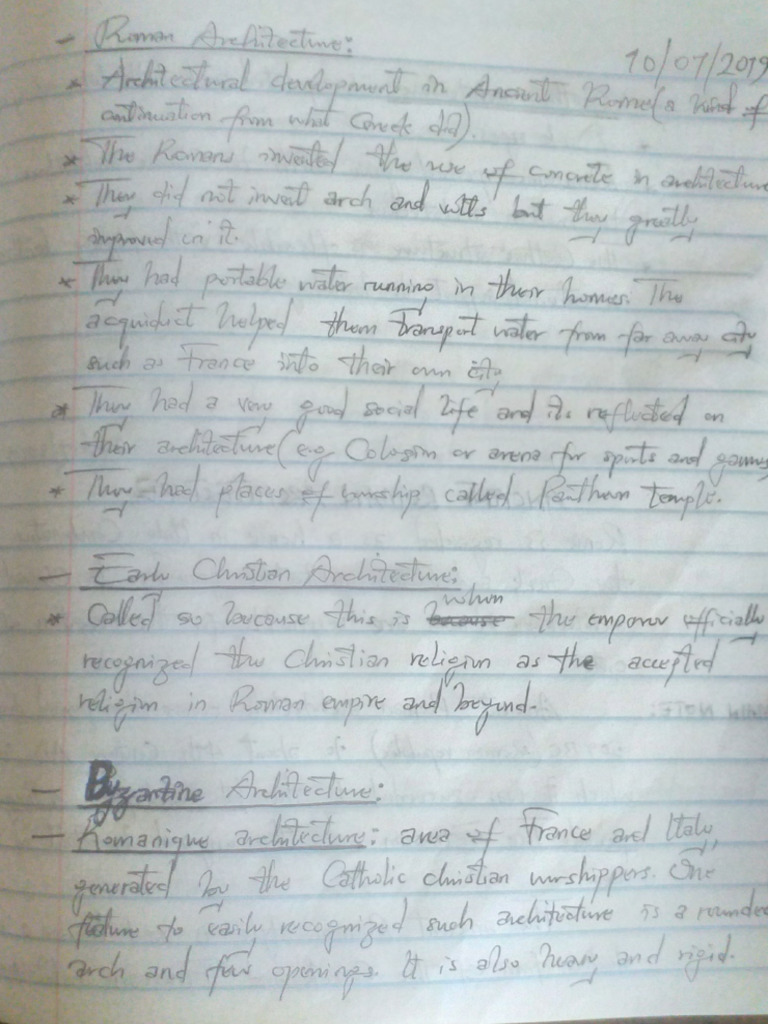 - Roman Architecture:
10/07/2019
* Architectural development in Ancient Rome (a kind of
continuation from what Greek did).
* The Romans invented the use of concrete in architecture
* They did not invent arch and but they greatly
improved on it.
* They had portable water running in their homes. The
acquiduct helped them transport water from far away city
such as France into their own city
* They had a very good social life and its reflected on
their architecture (e.g. or arena for sports and games
* They had places of worship called Panthum temple.
- Early Christian Architecture:
* Called so because this is when the emperor officially
recognized the Christian religion as the accepted
religion in Roman empire and beyond.
- Byzantine Architecture:
- Romanique architecture: area of France and Italy,
generated by the Catholic christian worshippers. One
feature to easily recognized such architecture is a rounded
arch and few openings. It is also heavy and rigid.